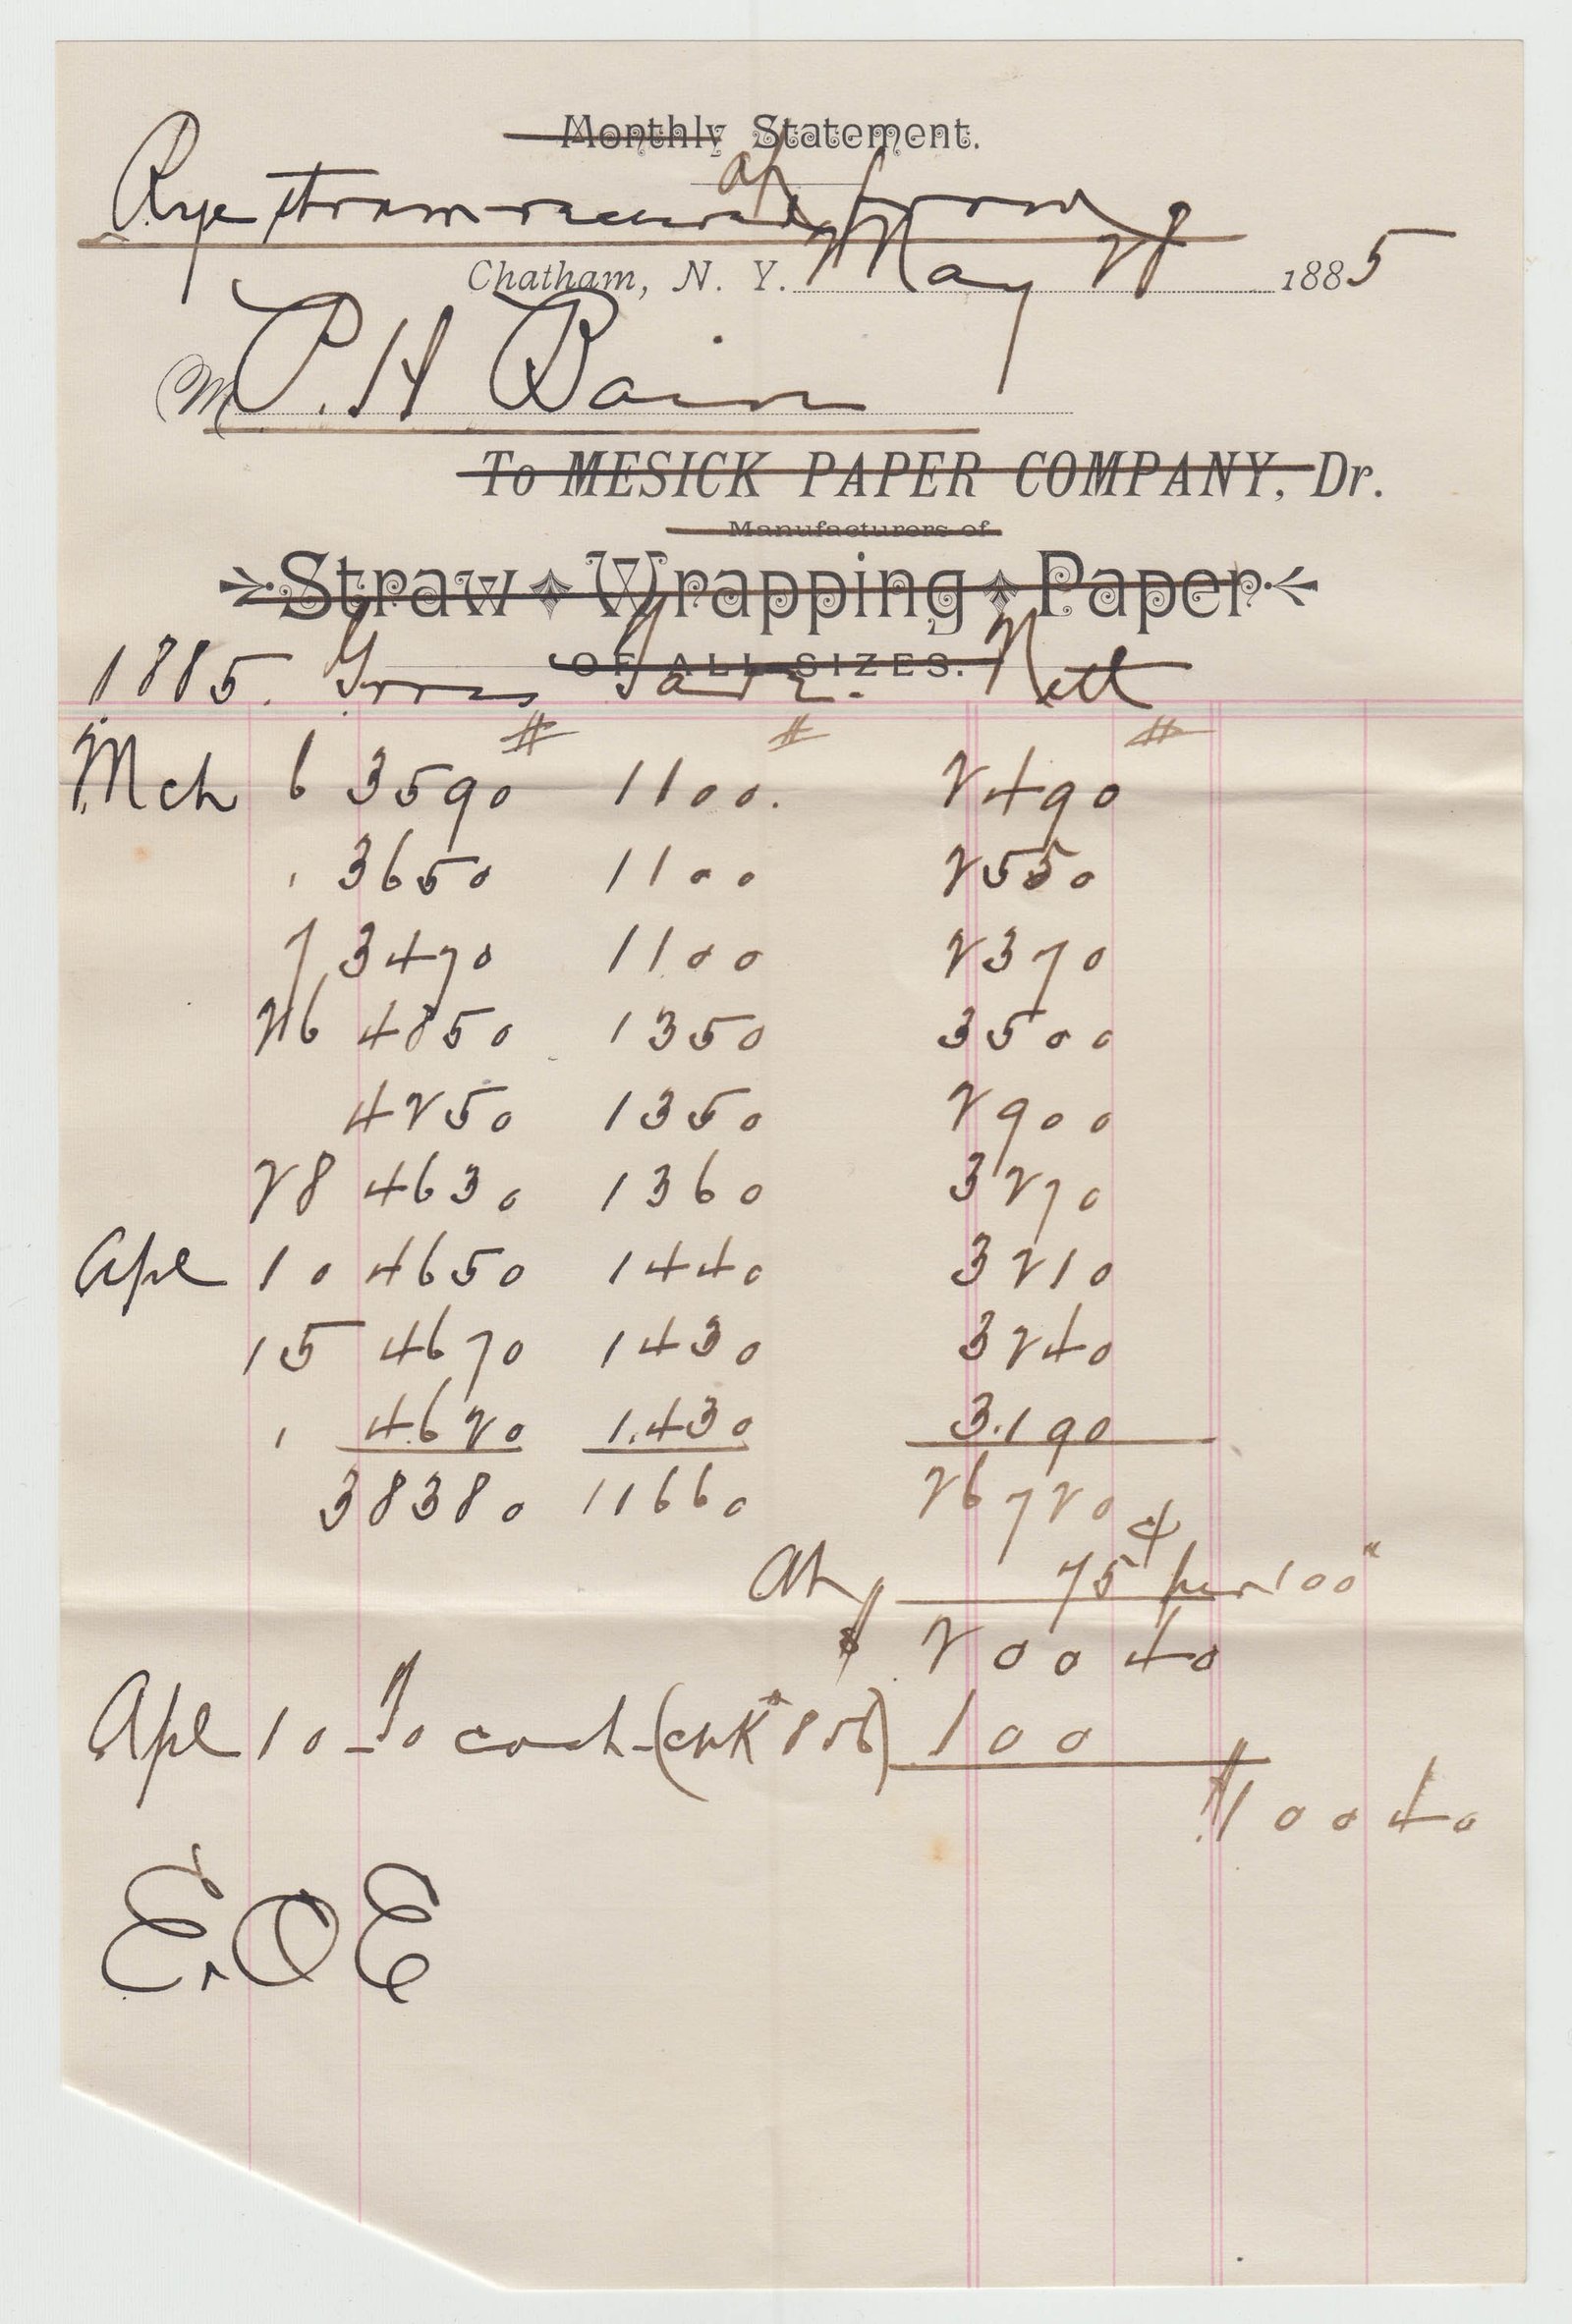 Monthly Statement.
of
Rye straw received from
Chatham, N. Y. May 28 1885
M P. H Bain
To MESICK PAPER COMPANY, Dr.
Manufacturers of
Straw Wrapping Paper
OF ALL SIZES.
1885. Gross Tare. Nett
# # #
Mch 6 3590 1100. 2490
" 3650 1100 2550
7 3470 1100 2370
26 4850 1350 3500
4250 1350 2900
28 4630 1360 3270
Apl 10 4650 1440 3210
15 4670 1430 3240
" 4620 1430 3190
38380 11660 26720
At 75 ¢ per 100"
$ 200 40
Apl 10 - To cash - (chk # 856) 100
$100 40
E. O E